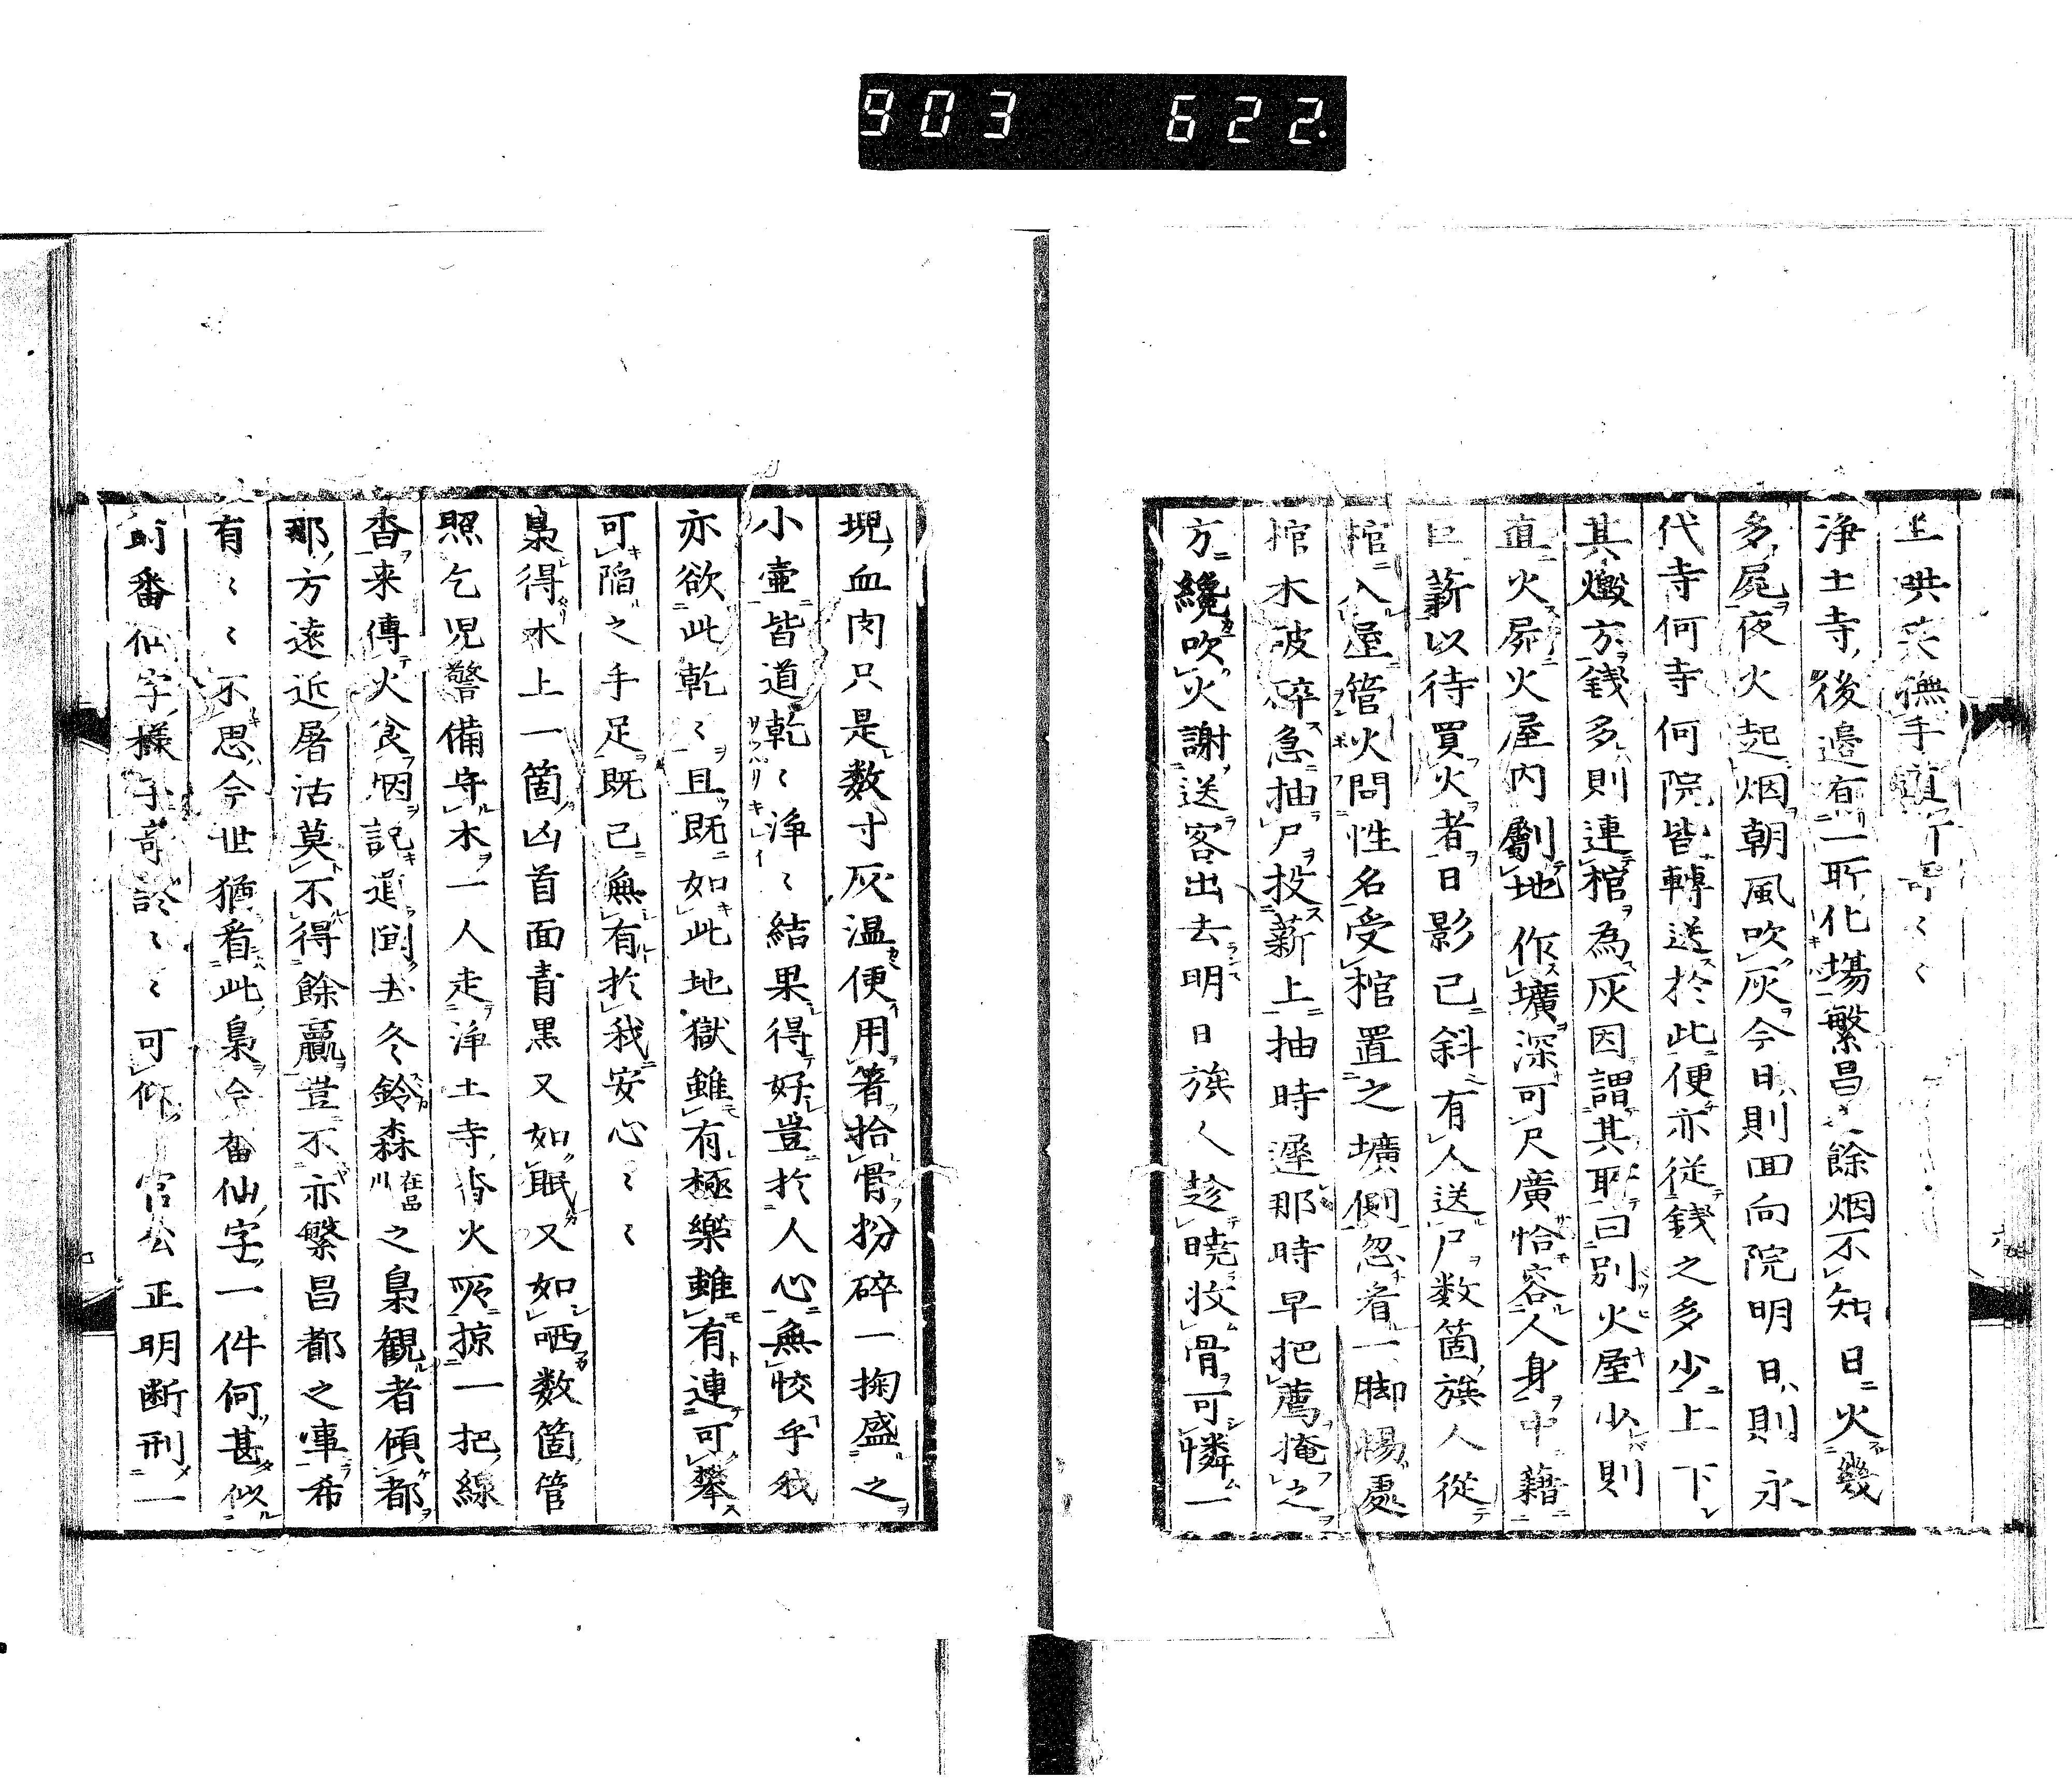 903 622.
哄笑撫手
浄土寺後邊有一所化場繁昌餘烟不知日火幾
多屍夜火起烟朝風吹灰今日則面向院明日則永
代寺何寺何院皆轉送於此便亦従銭之多少上下
其燬方銭多則連棺為灰因謂其所曰別火屋少則
直火屍火屋内劚地作壙深可尺廣恰容人身中藉
巨薪以待買火者日影已斜有人送尸数箇族人従
棺入屋管火問性名受棺置之壙側忽看一脚惕處
棺木破碎急抽尸投薪上抽時遅那時早把薦掩之
方纔吹火謝送客出去明日族人趁暁收骨可憐一
塊血肉只是数寸灰温便用箸拾骨扮碎一掬盛之
小壷皆道乾〻浄〻結果得好豈於人心無恔乎我
亦欲此乾〻且既如此地獄雖有極樂雖有連可攀
可陥之手足既已無有於我安心〻〻
梟得木上一箇凶首面青黒又如眠又如哂数箇管
照乞児警備守木一人走浄土寺 火 掠一把線
香来傳火食烟記道間去冬鈴森在品川之梟観者傾都
那方遠近屠沽莫不得餘贏豈不亦繁昌都之事希
有〻〻不思今世猶看此梟今番仙字一件何甚似
前番仙字様子奇談〻〻可仰官公正明断刑一